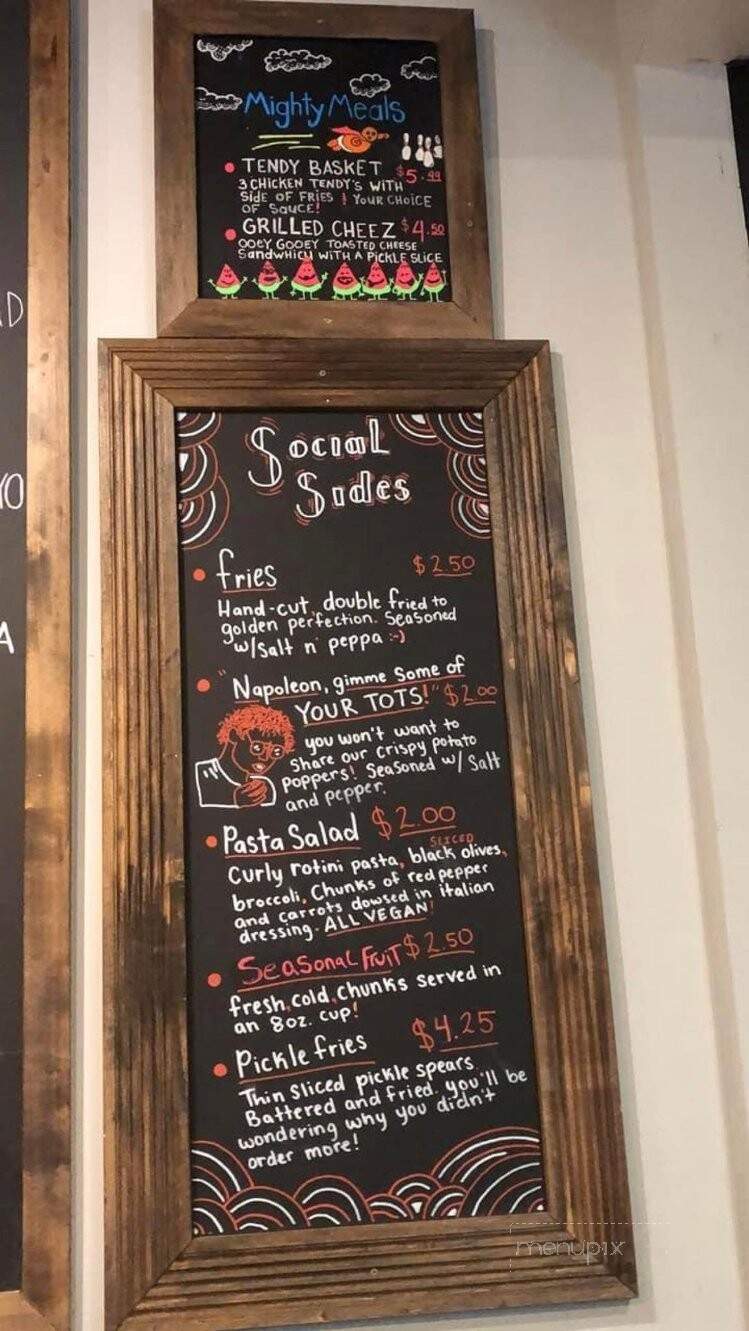 Mighty Meals
• TENDY BASKET $5.99
3 CHICKEN TENDY'S WITH
SIDE OF FRIES & YOUR CHOICE
OF SAUCE!
• GRILLED CHEEZ $4.50
OOEY GOOEY TOASTED CHEESE
Sandwhich WITH A PICKLE SLICE
Social
Sides
• fries $2.50
Hand-cut, double fried to
golden perfection. Seasoned
w/salt n' peppa :-)
• "Napoleon, gimme some of
YOUR TOTS!" $2.00
you won't want to
share our crispy potato
poppers! Seasoned w/ Salt
and pepper.
• Pasta Salad $2.00
SLICED
Curly rotini pasta, black olives,
broccoli, Chunks of red pepper
and carrots dowsed in italian
dressing. ALL VEGAN!
• Seasonal Fruit $2.50
fresh, cold, chunks served in
an 8oz. cup!
• Pickle fries $4.25
Thin sliced pickle spears.
Battered and fried. you'll be
wondering why you didn't
order more!
D
YO
A
menupix